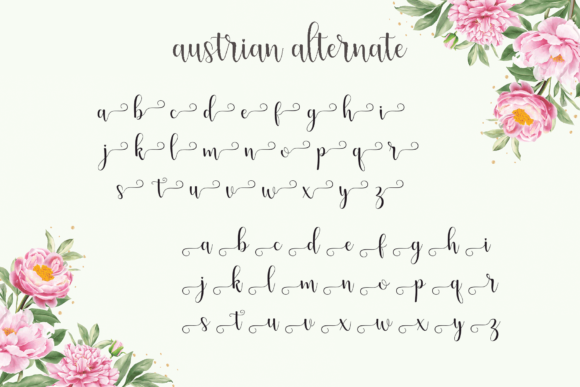 austrian alternate
a b c d e f g h i
j k l m n o p q r
s t u v w x y z
a b c d e f g h i
j k l m n o p q r
s t u v w x y z